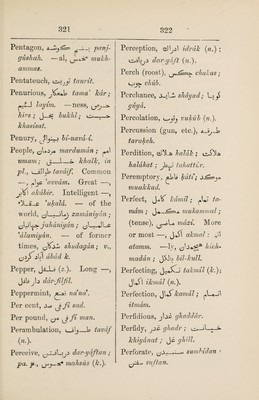 321
322
Pentagon, پنج گوشه panj-
gūshah. —al, مخمس mukh-
ammas.
Pentateuch, توریت taurīt.
Penurious, طمعکار tama' kār;
لئیم layīm. —ness, حرص
hirs; بخل bukhl; خساست
khasāsat.
Penury, بی نوائی bī-navā-ī.
People, مردمان mardumān; امم
umam; خلق khalk, in
pl., طوایف tavāīf. Common
—, عوام 'avvām. Great —,
اکابر akābir. Intelligent —,
عقلا 'ukalā. — of the
world, زمانیان zamāniyān;
جهانیان jahāniyān; عالمیان
'ālamiyān. — of former
times, شدگان shudagān; v.,
آباد کردن ābād k.
Pepper, فلفل (s.). Long —,
دار فلفل dār-filfil.
Peppermint, نعنع na'no'.
Per cent, فی صد fī sad.
Per pound, فی من fī man.
Perambulation, طواف tavāf
(n.).
Perceive, دریافتن dar-yāftan;
pa. p., محسوس mahsūs (k.).
Perception, ادراك idrāk (n.):
دریافت dar-yāft (n.).
Perch (roost), چکس chakas;
چوب chūb.
Perchance, شاید shāyad; گویا
gūyā.
Percolation, رطوب rutūb (n.).
Percussion (gun, etc.), طرقه
tarakeh.
Perdition, هلاك halāk; هلاکت
halākat; تهتر tahattir.
Peremptory, قاطع kāti'; موکد
muakkad.
Perfect, کامل kāmil; تمام ta-
mām; مکمل mukammal;
(tense), ماضی māzī. More
or most —, اکمل akmal; اتم
atamm. —ly, همچدان hich-
madān; بالکل bil-kull.
Perfecting, تکمیل takmīl (k.);
اکمال ikmāl (n.).
Perfection, کمال kamāl; اتمام
itmām.
Perfidious, غدار ghaddār.
Perfidy, غدر ghadr; خیانت
khiyānat; غل ghill.
Perforate, سنبیدن sumbīdan
سفتن suftan.